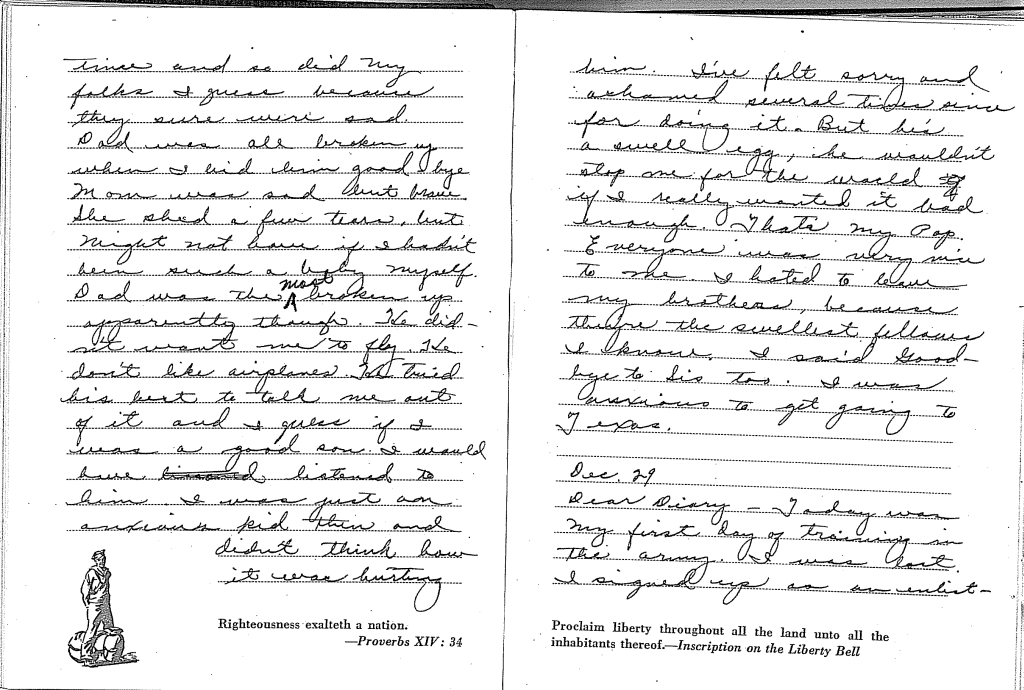 time and so did my
folks I guess because
they sure were sad.
Dad was all broken up
when I bid him good bye
Mom was sad but brave.
She shed a few tears, but
might not have if I hadn't
been such a baby myself.
Dad was the most broken up
apparently though. He did-
n't want me to fly. He
don't like airplanes. He tried
his best to talk me out
of it and I guess if I
was a good son I would
have listened to
him. I was just an
anxious kid then and
didn't think how
it was hurting
Righteousness exalteth a nation.
—Proverbs XIV: 34
him. I've felt sorry and
ashamed several times since
for doing it. But he's
a swell egg, he wouldn't
stop me for the world
if I really wanted it bad
enough. Thats my Pop.
Everyone was very nice
to me. I hated to leave
my brothers, because
they're the swellest fellows
I know. I said Good-
bye to Sis too. I was
anxious to get going to
Texas.
Dec. 29
Dear Diary — Today was
my first day of training in
the army. I was lost.
I signed up as an enlist-
Proclaim liberty throughout all the land unto all the
inhabitants thereof.—Inscription on the Liberty Bell